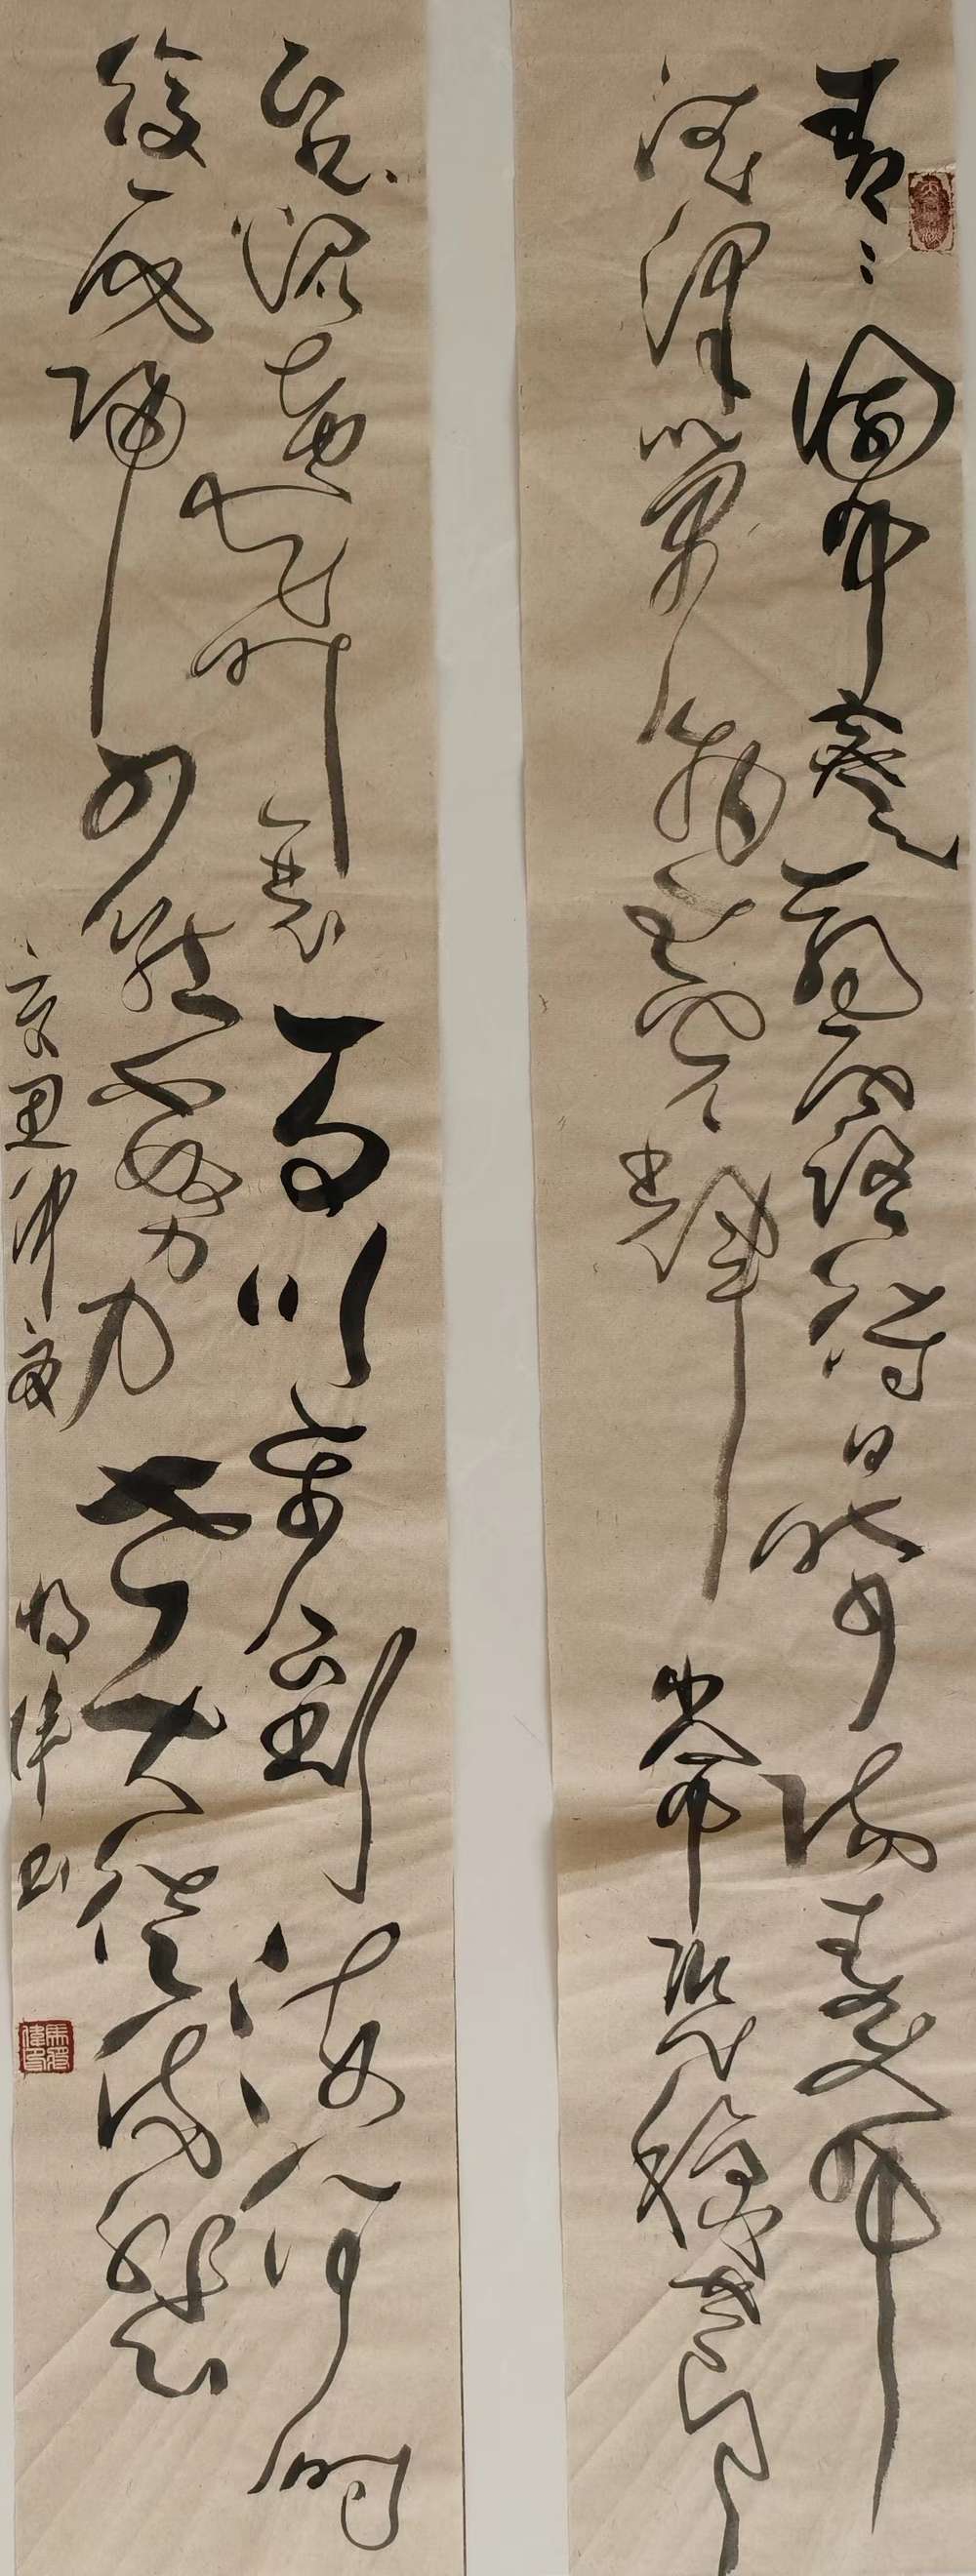 青〻園中葵朝露待日晞陽春布
德澤萬物生光輝常恐秋節
至焜黃華葉衰百川東到海何時
復西歸少壯不努力老大徒傷悲
辛丑仲夏 偉书